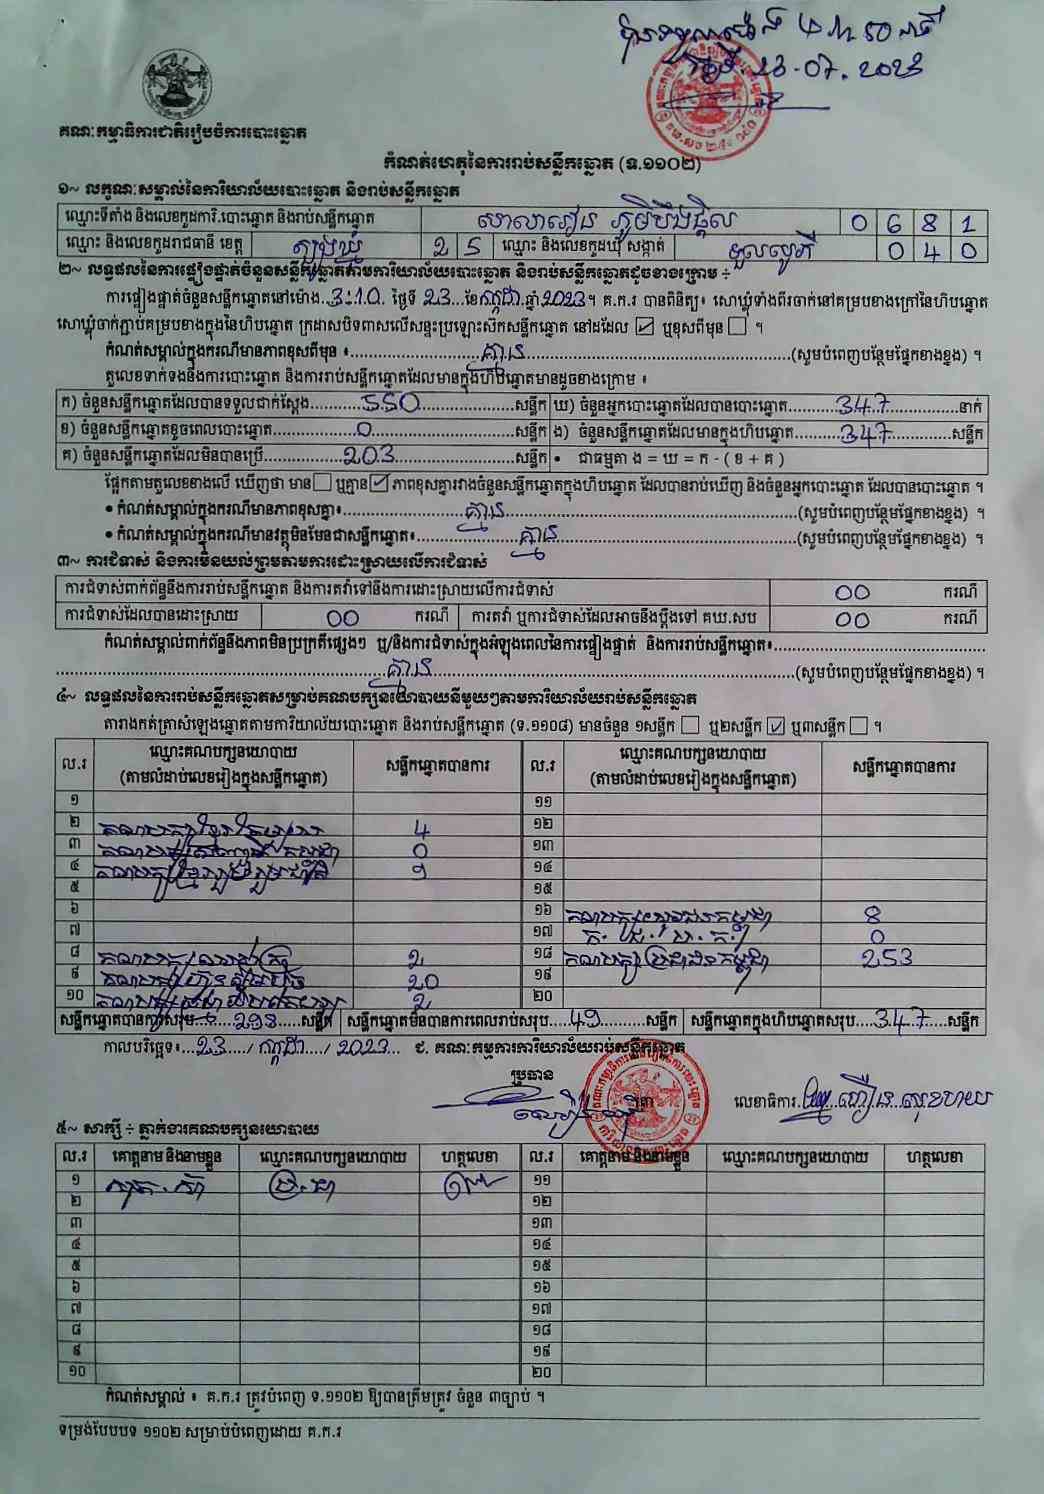 ម៉ោង 4 h 50 នាទី
ថ្ងៃទី 23-07.2023
គណៈកម្មាធិការជាតិរៀបចំការបោះឆ្នោត
កំណត់ហេតុនៃការរាប់សន្លឹកឆ្នោត (ទ.១១០២)
១~ លក្ខណៈសម្គាល់នៃការិយាល័យបោះឆ្នោត និងរាប់សន្លឹកឆ្នោត
ឈ្មោះទីតាំង និងលេខកូដការិ.បោះឆ្នោត និងរាប់សន្លឹកឆ្នោត សាលារៀន ភូមិបឹងផ្តិល 0 6 8 1
ឈ្មោះ និងលេខកូដរាជធានី ខេត្ត ត្បូងឃ្មុំ 2 5 ឈ្មោះ និងលេខកូដឃុំ សង្កាត់ ទួលសូភី 0 4 0
២~ លទ្ធផលនៃការផ្ទៀងផ្ទាត់ចំនួនសន្លឹកឆ្នោតតាមការិយាល័យបោះឆ្នោត និងរាប់សន្លឹកឆ្នោតដូចខាងក្រោម ÷
ការផ្ទៀងផ្ទាត់ចំនួនសន្លឹកឆ្នោតនៅម៉ោង..3:10. ថ្ងៃទី 23...ខែកក្កដា ឆ្នាំ2023។ គ.ក.រ បានពិនិត្យ៖ សោឃ្លុំទាំងពីរចាក់នៅគម្របខាងក្រៅនៃហិបឆ្នោត
សោឃ្លុំចាក់ភ្ជាប់គម្របខាងក្នុងនៃហិបឆ្នោត ក្រដាសបិទពាសលើសន្ទះប្រឡោះសឹកសន្លឹកឆ្នោត នៅដដែល ☑ ឬខុសពីមុន ☐ ។
កំណត់សម្គាល់ក្នុងករណីមានភាពខុសពីមុន ៖ គ្មាន (សូមបំពេញបន្ថែមផ្នែកខាងខ្នង) ។
តួលេខទាក់ទងនឹងការបោះឆ្នោត និងការរាប់សន្លឹកឆ្នោតដែលមានក្នុងហិបឆ្នោតមានដូចខាងក្រោម ៖
ក) ចំនួនសន្លឹកឆ្នោតដែលបានទទួលជាក់ស្តែង 550 សន្លឹក ឃ) ចំនួនអ្នកបោះឆ្នោតដែលបានបោះឆ្នោត 347 នាក់
ខ) ចំនួនសន្លឹកឆ្នោតខូចពេលបោះឆ្នោត 0 សន្លឹក ង) ចំនួនសន្លឹកឆ្នោតដែលមានក្នុងហិបឆ្នោត 347 សន្លឹក
គ) ចំនួនសន្លឹកឆ្នោតដែលមិនបានប្រើ 203 សន្លឹក • ជាធម្មតា ង = ឃ = ក - ( ខ + គ )
ផ្អែកតាមតួលេខខាងលើ ឃើញថា មាន ☐ ឬគ្មាន ☑ ភាពខុសគ្នារវាងចំនួនសន្លឹកឆ្នោតក្នុងហិបឆ្នោត ដែលបានរាប់ឃើញ និងចំនួនអ្នកបោះឆ្នោត ដែលបានបោះឆ្នោត ។
• កំណត់សម្គាល់ក្នុងករណីមានភាពខុសគ្នា៖ គ្មាន (សូមបំពេញបន្ថែមផ្នែកខាងខ្នង) ។
• កំណត់សម្គាល់ក្នុងករណីមានវត្ថុមិនមែនជាសន្លឹកឆ្នោត៖ គ្មាន (សូមបំពេញបន្ថែមផ្នែកខាងខ្នង) ។
៣~ ការជំទាស់ និងការមិនយល់ព្រមតាមការដោះស្រាយលើការជំទាស់
ការជំទាស់ពាក់ព័ន្ធនឹងការរាប់សន្លឹកឆ្នោត និងការតវ៉ាទៅនឹងការដោះស្រាយលើការជំទាស់ 00 ករណី
ការជំទាស់ដែលបានដោះស្រាយ 00 ករណី ការតវ៉ា ឬការជំទាស់ដែលអាចនឹងប្តឹងទៅ គឃ.សប 00 ករណី
កំណត់សម្គាល់ពាក់ព័ន្ធនឹងភាពមិនប្រក្រតីផ្សេងៗ ឬ/និងការជំទាស់ក្នុងអំឡុងពេលនៃការផ្ទៀងផ្ទាត់ និងការរាប់សន្លឹកឆ្នោត៖
គ្មាន (សូមបំពេញបន្ថែមផ្នែកខាងខ្នង) ។
៤~ លទ្ធផលនៃការរាប់សន្លឹកឆ្នោតសម្រាប់គណបក្សនយោបាយនីមួយៗតាមការិយាល័យរាប់សន្លឹកឆ្នោត
តារាងកត់ត្រាសំឡេងឆ្នោតតាមការិយាល័យបោះឆ្នោត និងរាប់សន្លឹកឆ្នោត (ទ.១១០៨) មានចំនួន ១សន្លឹក ☐ ឬ២សន្លឹក ☑ ឬ៣សន្លឹក ☐ ។
ល.រ ឈ្មោះគណបក្សនយោបាយ (តាមលំដាប់លេខរៀងក្នុងសន្លឹកឆ្នោត) សន្លឹកឆ្នោតបានការ ល.រ ឈ្មោះគណបក្សនយោបាយ (តាមលំដាប់លេខរៀងក្នុងសន្លឹកឆ្នោត) សន្លឹកឆ្នោតបានការ
១ ១១
២ 4 ១២
៣ 0 ១៣
៤ គណបក្សខ្មែររួបរួមជាតិ 9 ១៤
៥ ១៥
៦ ១៦ 8
៧ ១៧ 0
៨ 2 ១៨ គណបក្សប្រជាជនកម្ពុជា 253
៩ គណបក្សហ៊្វុនស៊ិនប៉ិច 20 ១៩
១០ 2 ២០
សន្លឹកឆ្នោតបានការសរុប 298 សន្លឹក សន្លឹកឆ្នោតមិនបានការពេលរាប់សរុប 49 សន្លឹក សន្លឹកឆ្នោតក្នុងហិបឆ្នោតសរុប 347 សន្លឹក
កាលបរិច្ឆេទ៖ 23 / កក្កដា / 2023 ជ. គណៈកម្មការការិយាល័យរាប់សន្លឹកឆ្នោត
ប្រធាន
លេខាធិការ
៥~ សាក្សី ÷ ភ្នាក់ងារគណបក្សនយោបាយ
ល.រ គោត្តនាម និងនាមខ្លួន ឈ្មោះគណបក្សនយោបាយ ហត្ថលេខា ល.រ គោត្តនាម និងនាមខ្លួន ឈ្មោះគណបក្សនយោបាយ ហត្ថលេខា
១ ប្រ.ជា ១១
២ ១២
៣ ១៣
៤ ១៤
៥ ១៥
៦ ១៦
៧ ១៧
៨ ១៨
៩ ១៩
១០ ២០
កំណត់សម្គាល់ ៖ គ.ក.រ ត្រូវបំពេញ ទ.១១០២ ឱ្យបានត្រឹមត្រូវ ចំនួន ៣ច្បាប់ ។
ទម្រង់បែបបទ ១១០២ សម្រាប់បំពេញដោយ គ.ក.រ